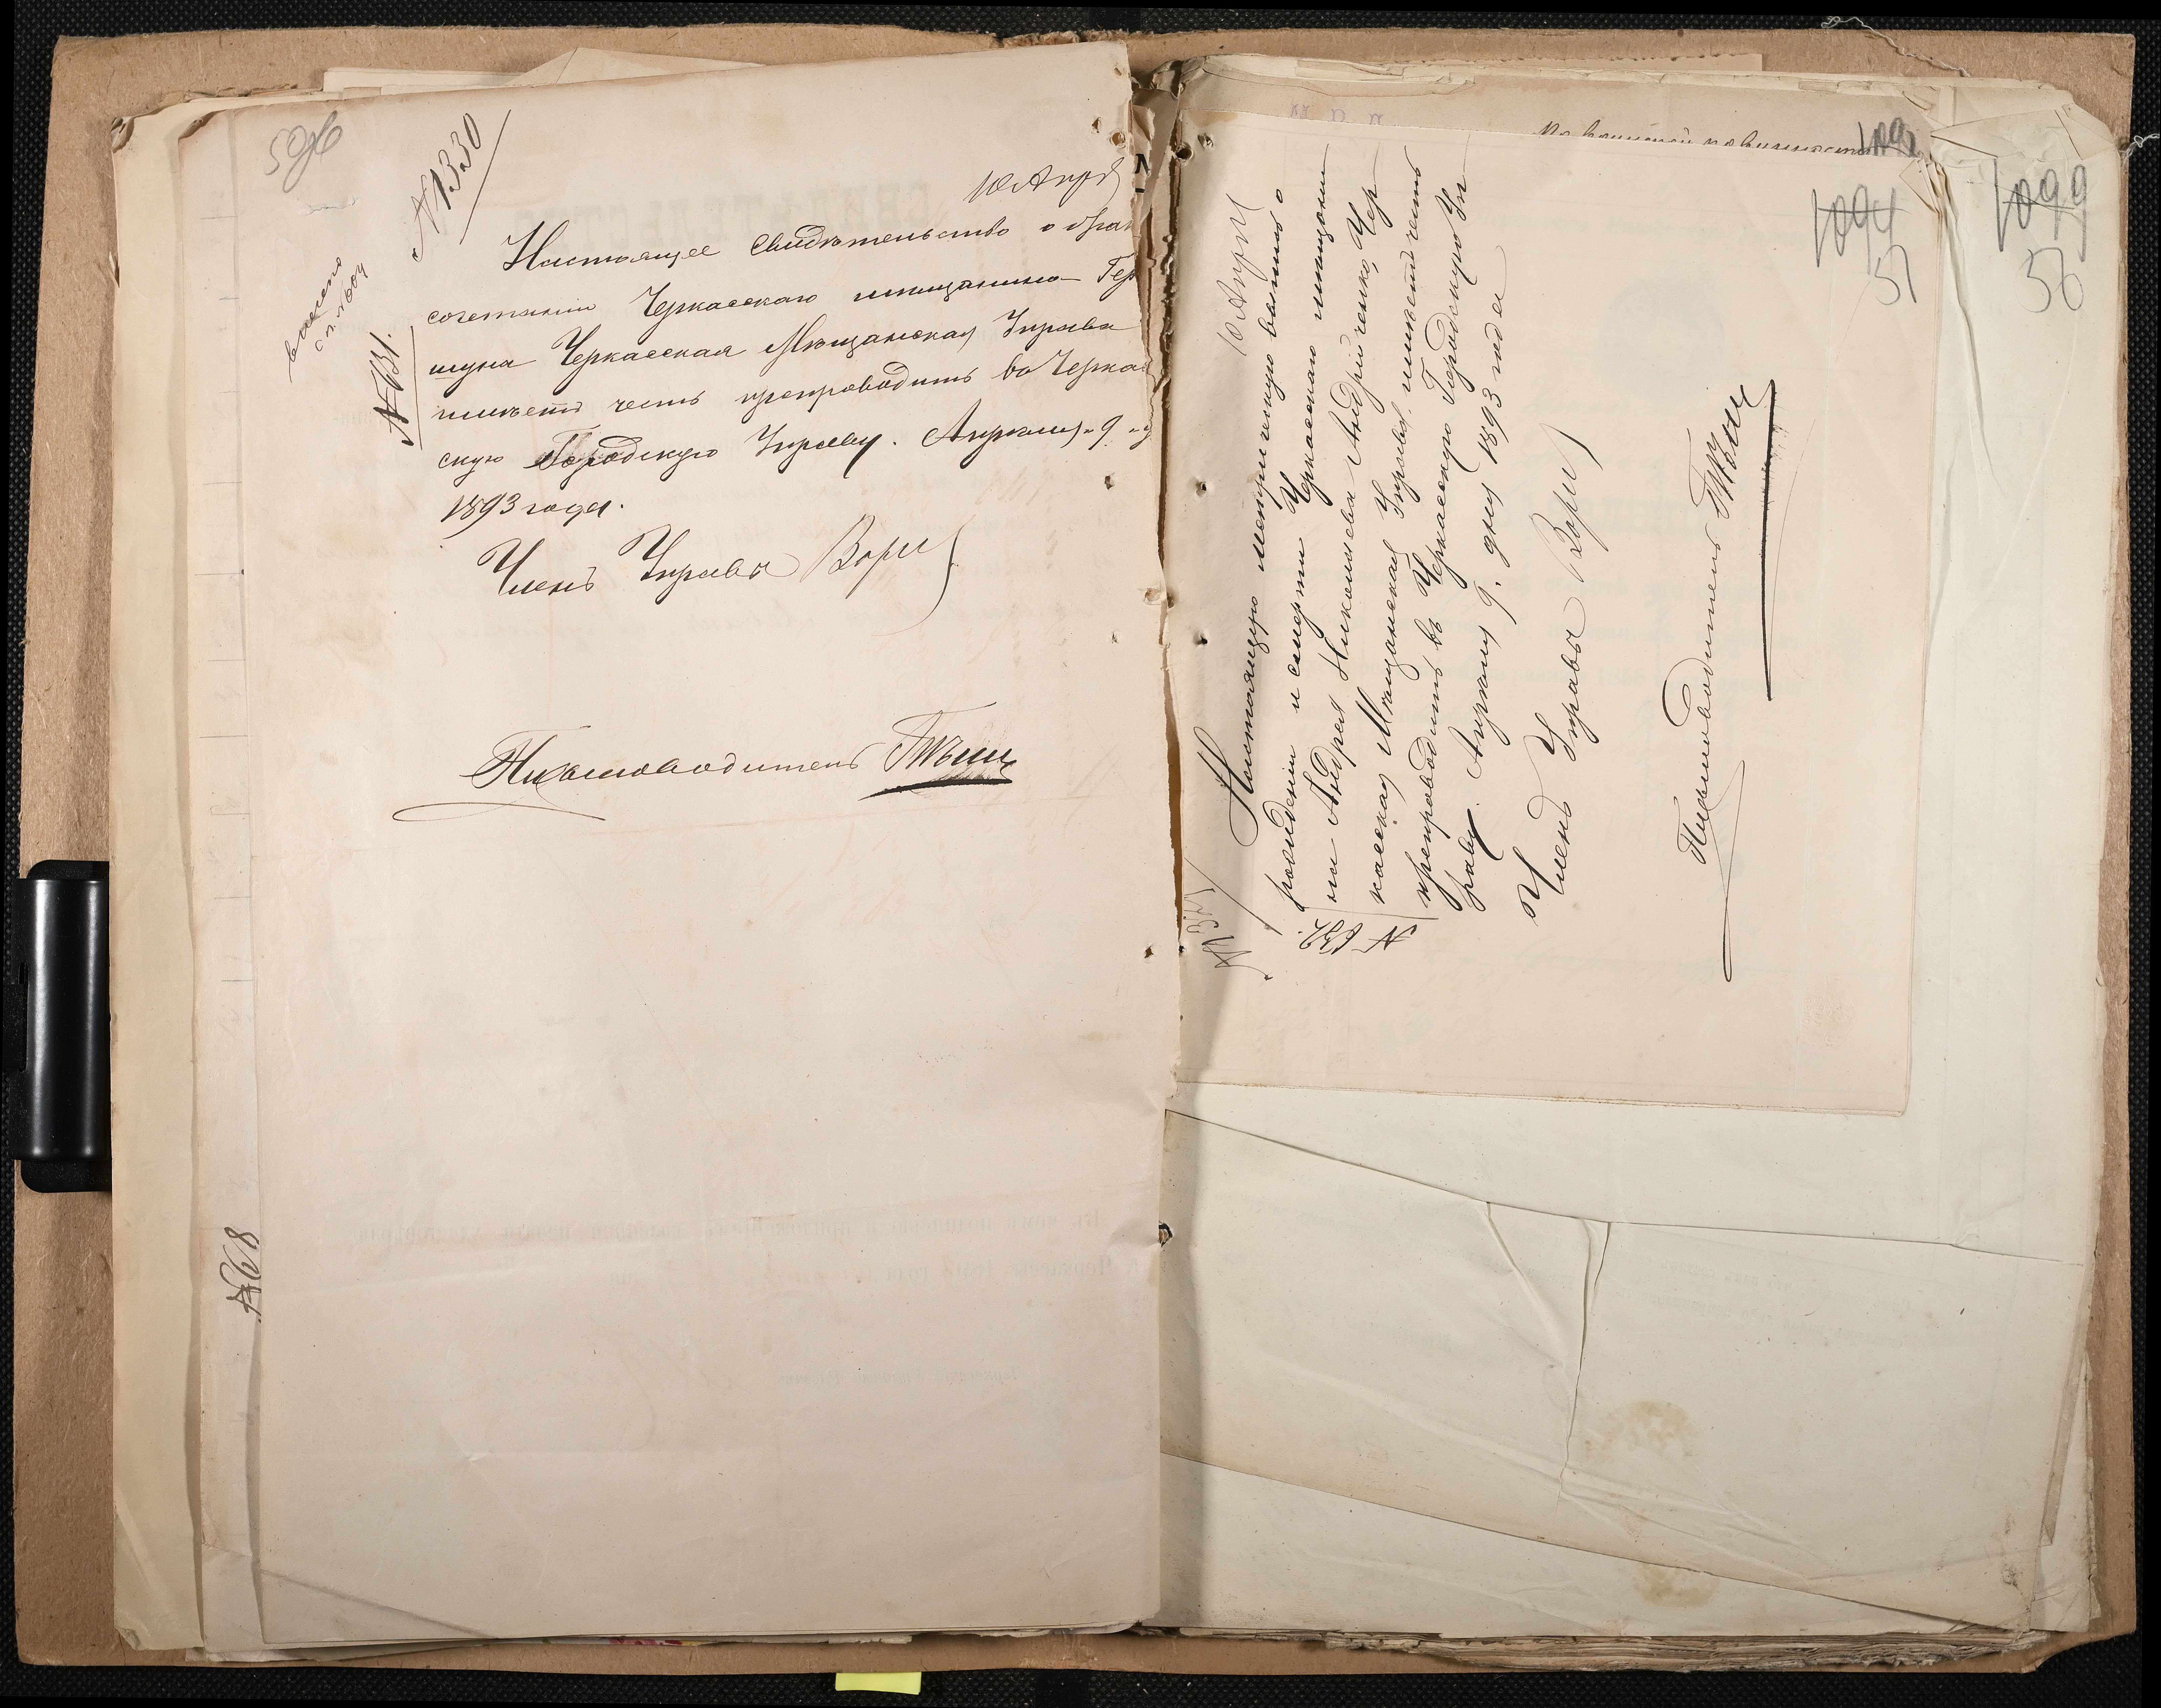 50об
N 1330
10 Апрѣ
Настоящее Свидѣтельство о брак
сочетаніи Черкасскаго мѣщанина Гер
шуна Черкасская Мѣщанская Управа
имѣетъ честь препроводить въ Черкас
скую Городскую Управу. Апрѣля 9
1893 года.
N 631.
Членъ Управы
Письмоводитель
По воинской повинности
1094
51
1099
56
10 Апрѣл
Настоящую метрическую выпись о
рожденіи и смерти Черкасскаго мещани
на Андрея Николаева Андрійченко, Чер
касская Мѣщанская Управа, имѣетъ честь
препроводить въ Черкасскую Городскую Уп
раву. Апрѣля 9. дня 1893 года
N 632.
Членъ Управы
Письмоводитель